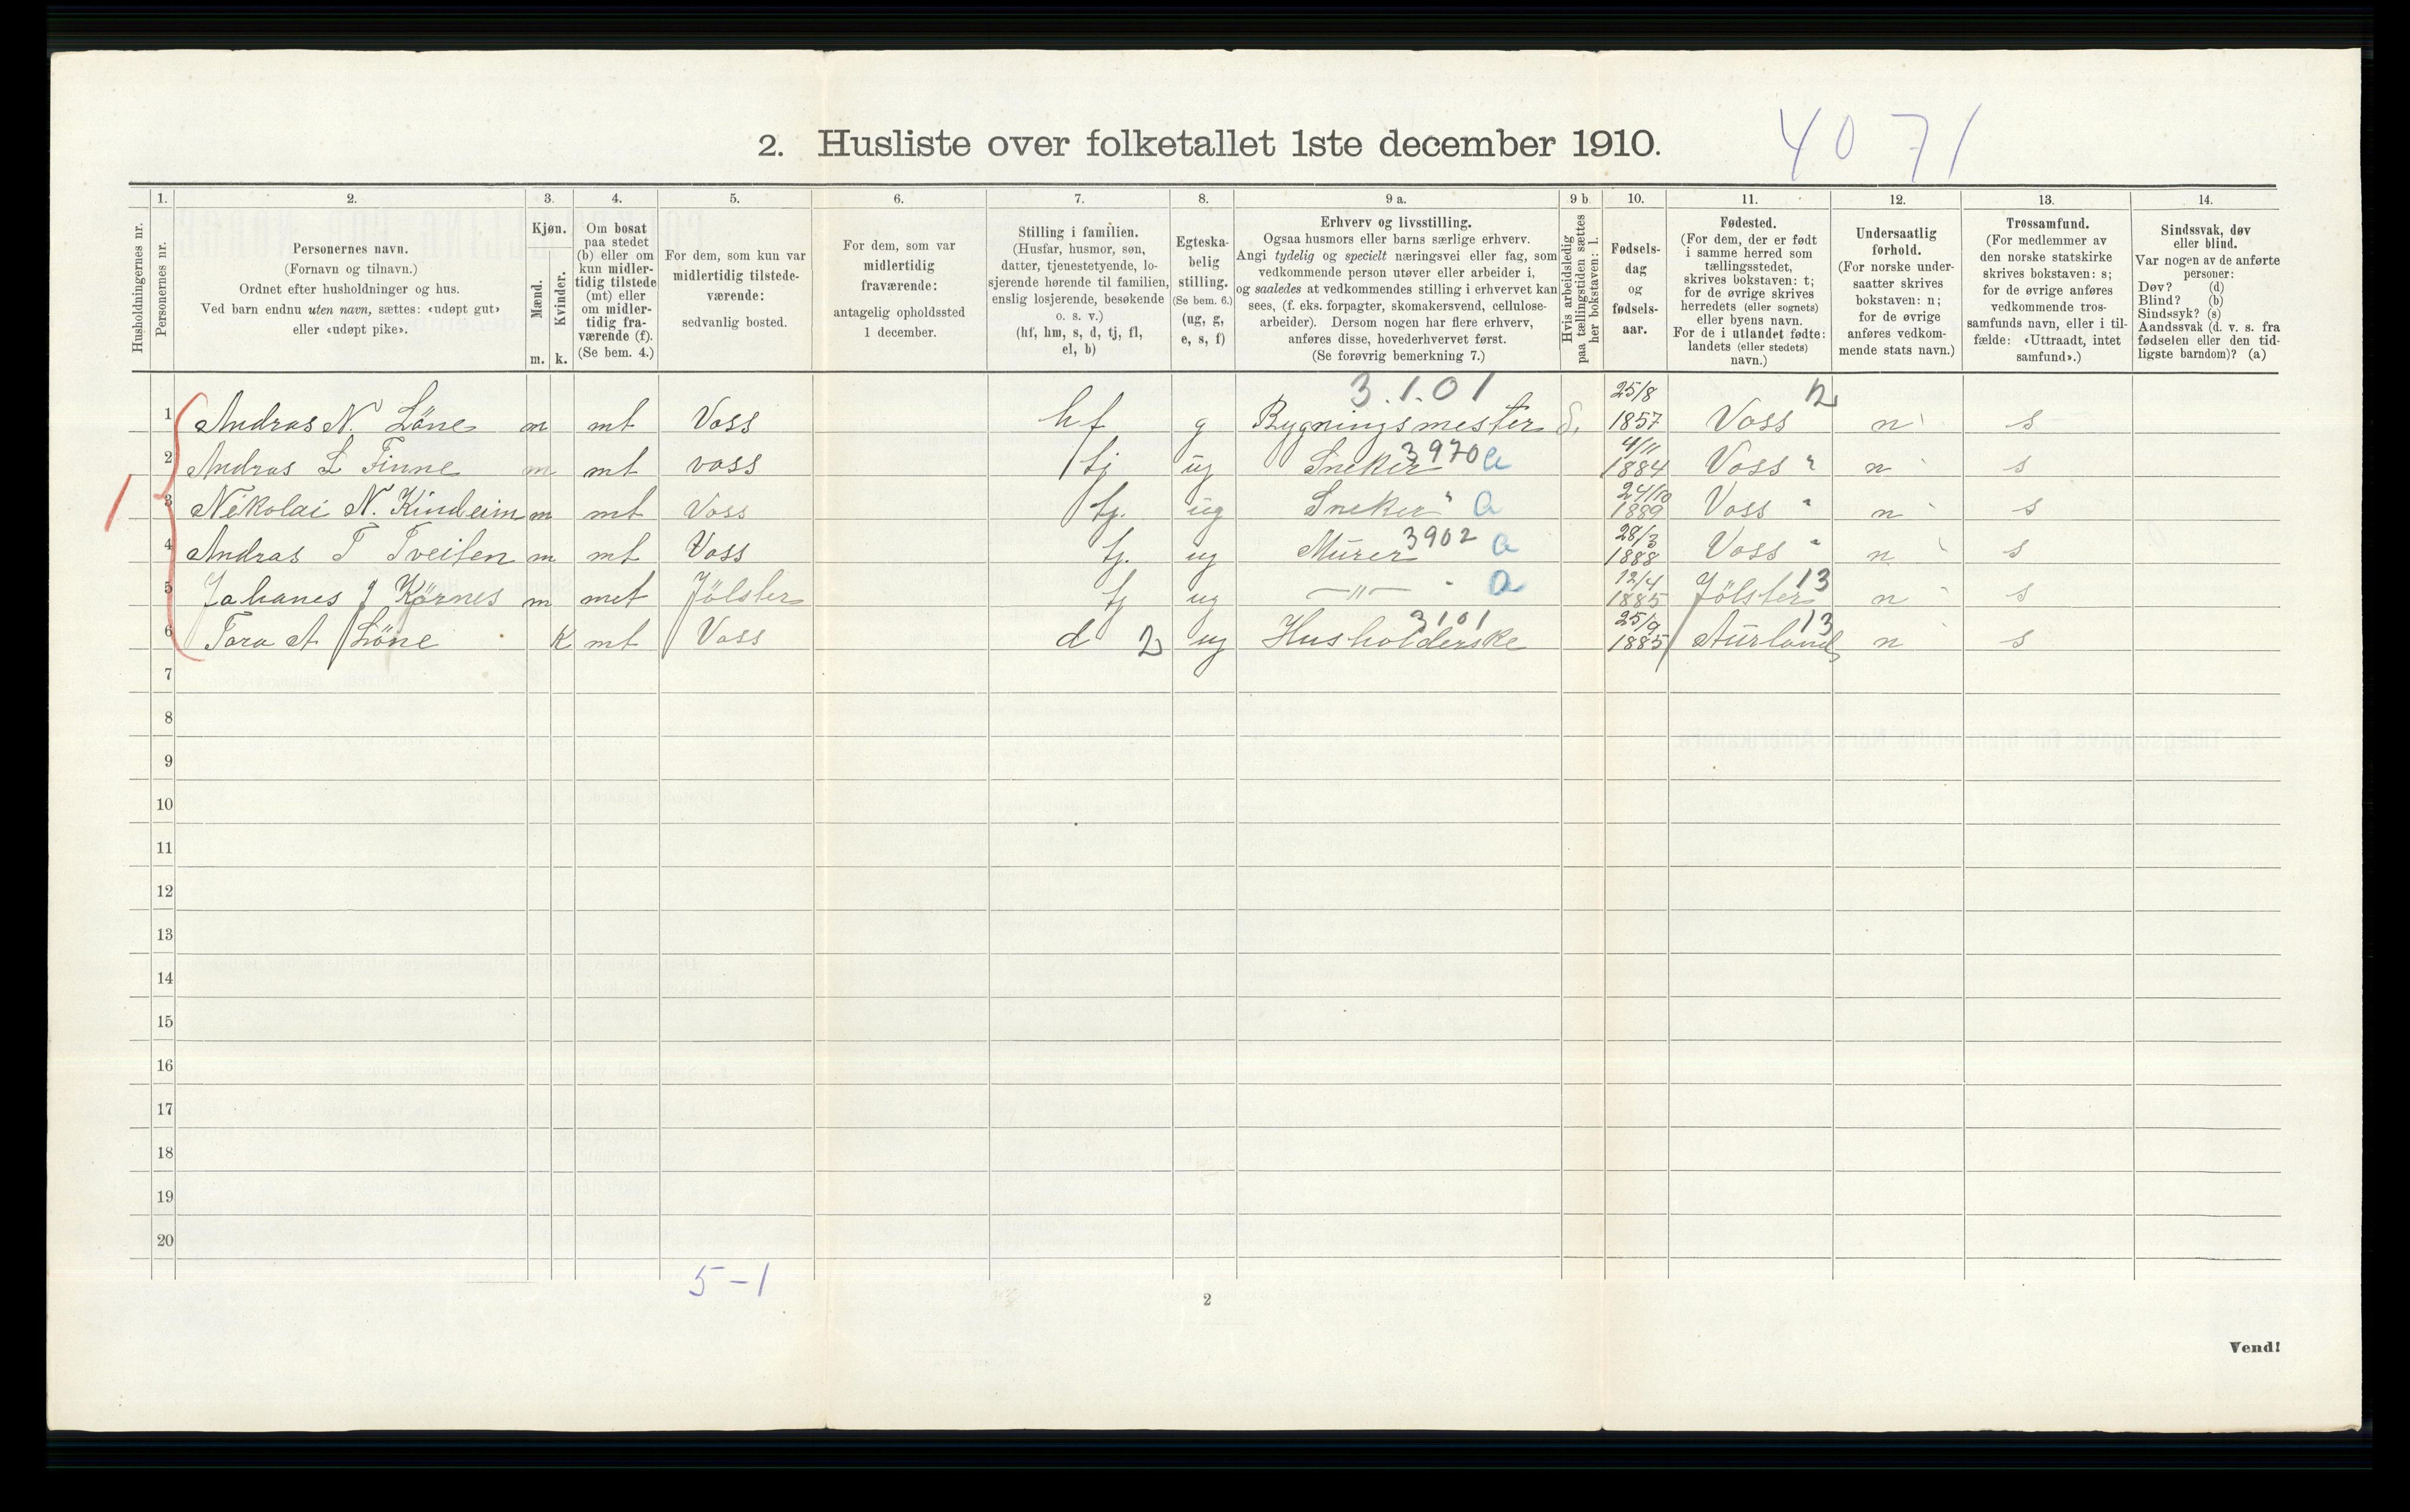 4071
2. Husliste over folketallet 1ste december 1910.
1. 2. 3. 4. 5. 6. 7. 8. 9 a. 9 b 10. 11. 12. 13. 14.
Husholdningernes nr.
Personernes nr.
Personernes navn.
(Fornavn og tilnavn.)
Ordnet efter husholdninger og hus.
Ved barn endnu uten navn, sættes: «udøpt gut»
eller «udøpt pike».
Kjøn.
Mænd.
Kvinder.
m. k.
Om bosat
paa stedet
(b) eller om
kun midler-
tidig tilstede
(mt) eller
om midler-
tidig fra-
værende (f).
(Se bem. 4.)
For dem, som kun var
midlertidig tilstede-
værende:
sedvanlig bosted.
For dem, som var
midlertidig
fraværende:
antagelig opholdssted
1 december.
Stilling i familien.
(Husfar, husmor, søn,
datter, tjenestetyende, lo-
sjerende hørende til familien,
enslig losjerende, besøkende
o. s. v.)
(hf, hm, s, d, tj, fl,
el, b)
Egteska-
belig
stilling.
(Se bem. 6.)
(ug, g,
e, s, f)
Erhverv og livsstilling.
Ogsaa husmors eller barns særlige erhverv.
Angi tydelig og specielt næringsvei eller fag, som
vedkommende person utøver eller arbeider i,
og saaledes at vedkommendes stilling i erhvervet kan
sees, (f. eks. forpagter, skomakersvend, cellulose-
arbeider). Dersom nogen har flere erhverv,
anføres disse, hovederhvervet først.
(Se forøvrig bemerkning 7.)
Hvis arbeidsledig
paa tællingstiden sættes
her bokstaven: l.
Fødsels-
dag
og
fødsels-
aar.
Fødested.
(For dem, der er født
i samme herred som
tællingsstedet,
skrives bokstaven: t;
for de øvrige skrives
herredets (eller sognets)
eller byens navn.
For de i utlandet fødte:
landets (eller stedets)
navn.)
Undersaatlig
forhold.
(For norske under-
saatter skrives
bokstaven: n;
for de øvrige
anføres vedkom-
mende stats navn.)
Trossamfund.
(For medlemmer av
den norske statskirke
skrives bokstaven: s;
for de øvrige anføres
vedkommende tros-
samfunds navn, eller i til-
fælde: «Uttraadt, intet
samfund».)
Sindssvak, døv
eller blind.
Var nogen av de anførte
personer:
Døv? (d)
Blind? (b)
Sindssyk? (s)
Aandssvak (d. v. s. fra
fødselen eller den tid-
ligste barndom)? (a)
3.1.01 25/8 12
1 Andras N. Löne m mt Voss hf g Bygningsmester 1857 Voss n s
3970 4/11
2 Andras L Finne m mt voss tj ug Sneker a 1884 Voss " n s
24/10
3 Nikolai N. Kindeim m mt Voss tj. ug Sneker " a 1889 Voss " n s
3902 28/3
4 Andras T Tveiten m mt Voss tj. ug Murer a 1888 Voss " n s
12/4 13
5 Johanes J Kørnes m met Jölster tj ug —"— " a 1885 Jölster n s
3101 25/9 13
6 Tora A Löne k mt Voss d 2 ug Husholderske 1885 Aurland n s
1
7
8
9
10
11
12
13
14
15
16
17
18
19
20
5-1
2
Vend!